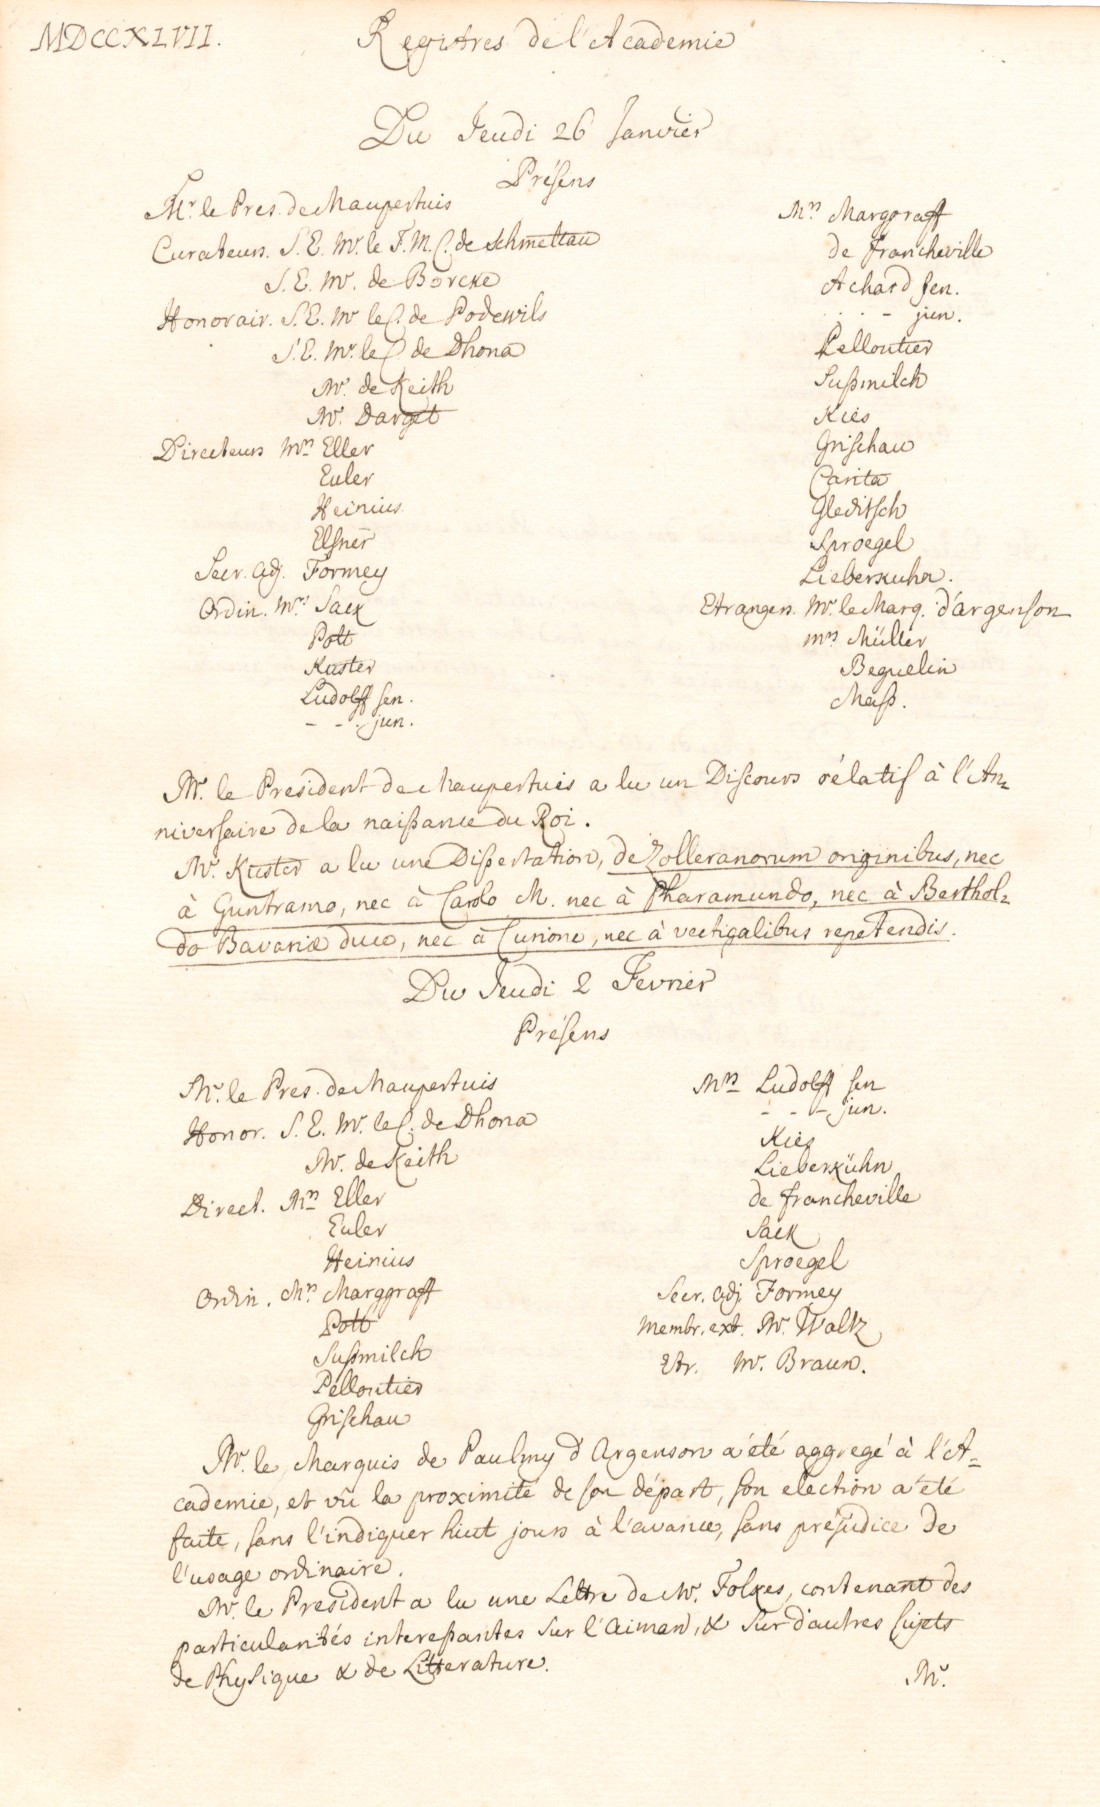 MDCCXLVII.
Registres de l'Academie
Du Jeudi 26 Janvier
Présens
Mr. le Pres. de Maupertuis
Curateurs. S. E. Mr. le F. M. C. de Schmettau
S. E. Mr. de Borcke
Honorair. S. E. Mr le C. de Podewils
S. E. Mr. le C de Dhona
Mr. de Keith
Mr. Darget
Directeurs Mrs Eller
Euler
Heinius
Elsner
Secr. Adj. Formey
Ordin. Mrs Sack
Pott
Kuster
Ludolff sen.
- - - jun.
Mrs Margraff
de Francheville
Achard sen.
. . - jun.
Pelloutier
Sußmilch
Kies
Grischau
Carita
Gleditsch
Sproegel
Lieberkuhn.
Etrangers. Mr. le Marq. d'Argenson
Mrs Müller
Beguelin
Meiß.
Mr. le President de Maupertuis a lu un Discours rélatif à l'An=
niversaire de la naißance du Roi.
Mr. Kuster a lu une Dißertation, de Zolleranorum originibus, nec
à Guntramo, nec à Carolo M. nec à Pharamundo, nec à Berthol=
do Bavariæ duce, nec à Curione, nec à vectigalibus repetendis.
Du Jeudi 2 Fevrier
Présens
Mr. le Pres. de Maupertuis
Honor. S. E. Mr. le C. de Dhona
Mr. de Keith
Direct. Mrs Eller
Euler
Heinius
Ordin. Mrs Marggraff
Pott
Sußmilch
Pelloutier
Grischau
Mrs Ludolff sen
- - - jun.
Kies
Lieberkühn
de Francheville
Sack
Sproegel
Secr. Adj Formey
Membr. ext. Mr. Waltz
Etr. Mr. Braun.
Mr. le Marquis de Paulmy d'Argenson a été aggregé à l'A=
cademie, et vû la proximité de son départ, son election a été
faite, sans l'indiquer huit jours à l'avance, sans préjudice de
l'usage ordinaire.
Mr. le President a lu une Lettre de Mr. Folkes, contenant des
particularités intereßantes sur l'Aiman, & sur d'autres sujets
de Physique & de Litterature.
Mr.